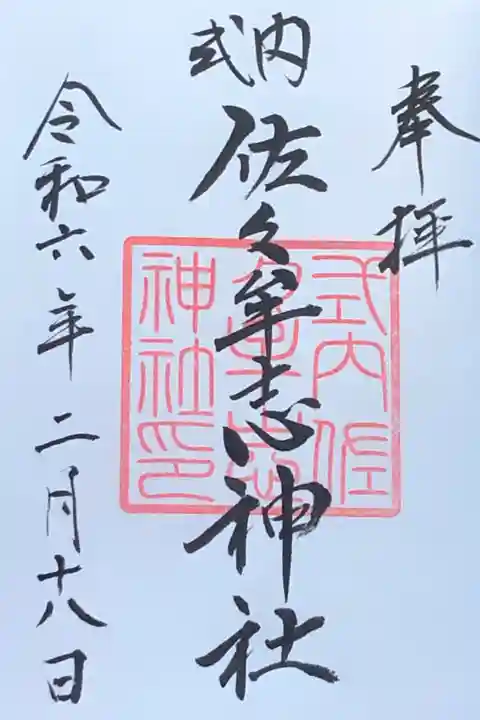 奉拝
式内
佐々牟志神社
式内佐
々牟志
神社印
令和六年二月十八日